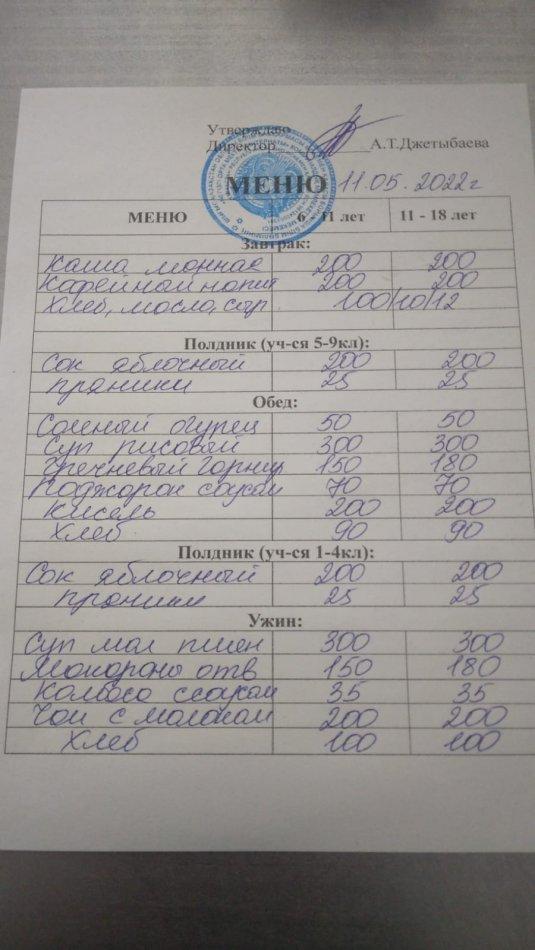 Утверждаю
Директор А.Т.Джетыбаева
МЕНЮ 11.05.2022г
МЕНЮ 6 - 11 лет 11 - 18 лет
Завтрак:
Каша манная 200 200
Кофейный напит 200 200
Хлеб, масло, сыр 100/10/12
Полдник (уч-ся 5-9кл):
Сок яблочный 200 200
пряники 25 25
Обед:
Соленый огурец 50 50
Суп рисовый 300 300
Гречневый гарнир 150 180
Поджарок 70 70
Кисель 200 200
Хлеб 90 90
Полдник (уч-ся 1-4кл):
Сок яблочный 200 200
пряники 25 25
Ужин:
Суп мол пшен 300 300
Макароны отв 150 180
Колбаса 35 35
Чай с молоком 200 200
Хлеб 100 100